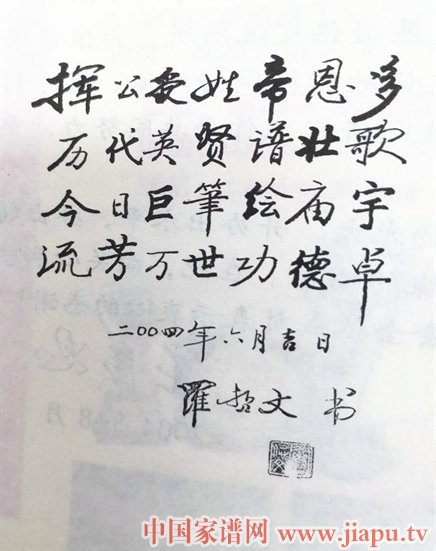 挥公受姓帝恩多
历代英贤谱壮歌
今日巨筆绘庙宇
流芳万世功德卓
二〇〇四年六月吉日
羅哲文 书
中国家谱网 www.jiapu.tv